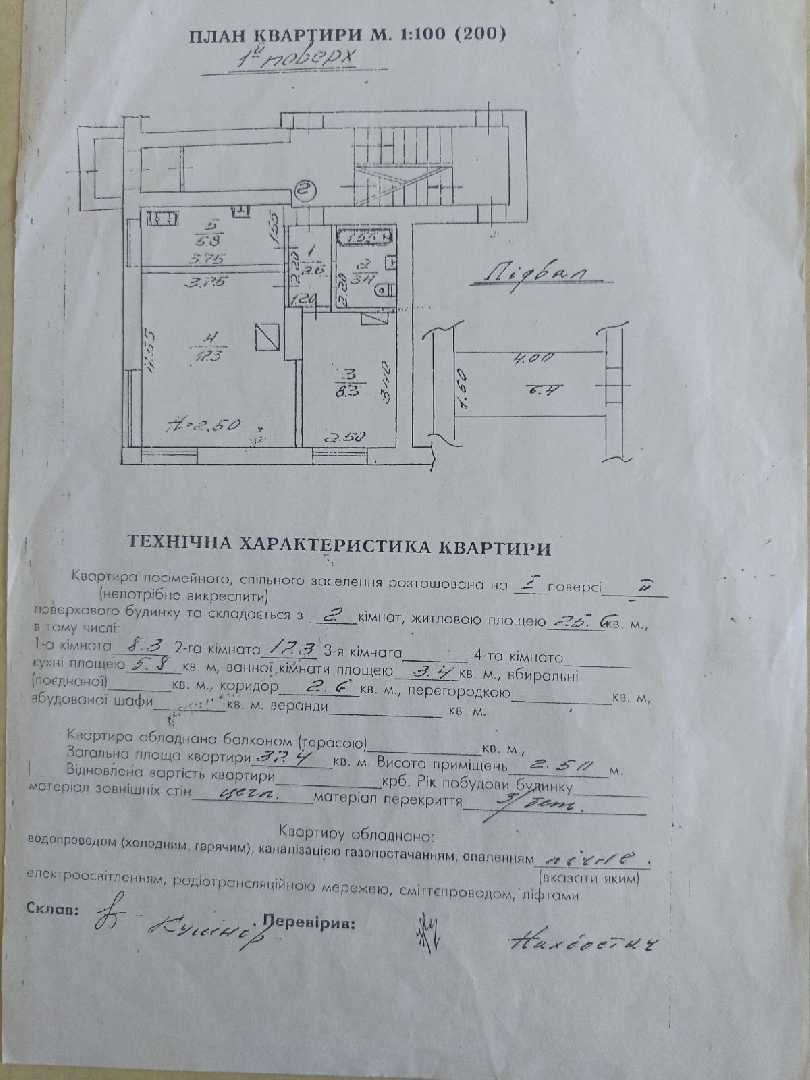 ПЛАН КВАРТИРИ М. 1:100 (200)
1й поверх
2
5
5.8
3.75
1.55
1
2.6
2.20
1.20
1.55
2
3.4
2.20
Підвал
3.75
4
17.3
4.55
H=2.50
3
8.3
3.40
2.50
4.00
1.60
6.4
ТЕХНІЧНА ХАРАКТЕРИСТИКА КВАРТИРИ
Квартира посімейного, спільного заселення розташована на I поверсі II
(непотрібне викреслити)
поверхового будинку та складається з 2 кімнат, житловою площею 25.6 кв. м.,
в тому числі:
1-а кімната 8.3 2-га кімната 17.3 3-я кімната 4-та кімната
кухні площею 5.8 кв. м, ванної кімнати площею 3.4 кв. м., вбиральні
(поєднаної) кв. м., коридор 2.6 кв. м., перегородкою кв. м,
вбудованої шафи кв. м. веранди кв. м.
Квартира обладнана балконом (терасою) кв. м.,
Загальна площа квартири 37.4 кв. м. Висота приміщень 2.50 м.
Відновлена вартість квартири крб. Рік побудови будинку
матеріал зовнішніх стін цегл. матеріал перекриття з/бет.
Квартиру обладнано:
водопроводом (холодним, гарячим), каналізацією газопостачанням, опаленням пічне.
(вказати яким)
електроосвітленням, радіотрансляційною мережею, сміттєпроводом, ліфтами
Склав: Кушнір Перевірив: